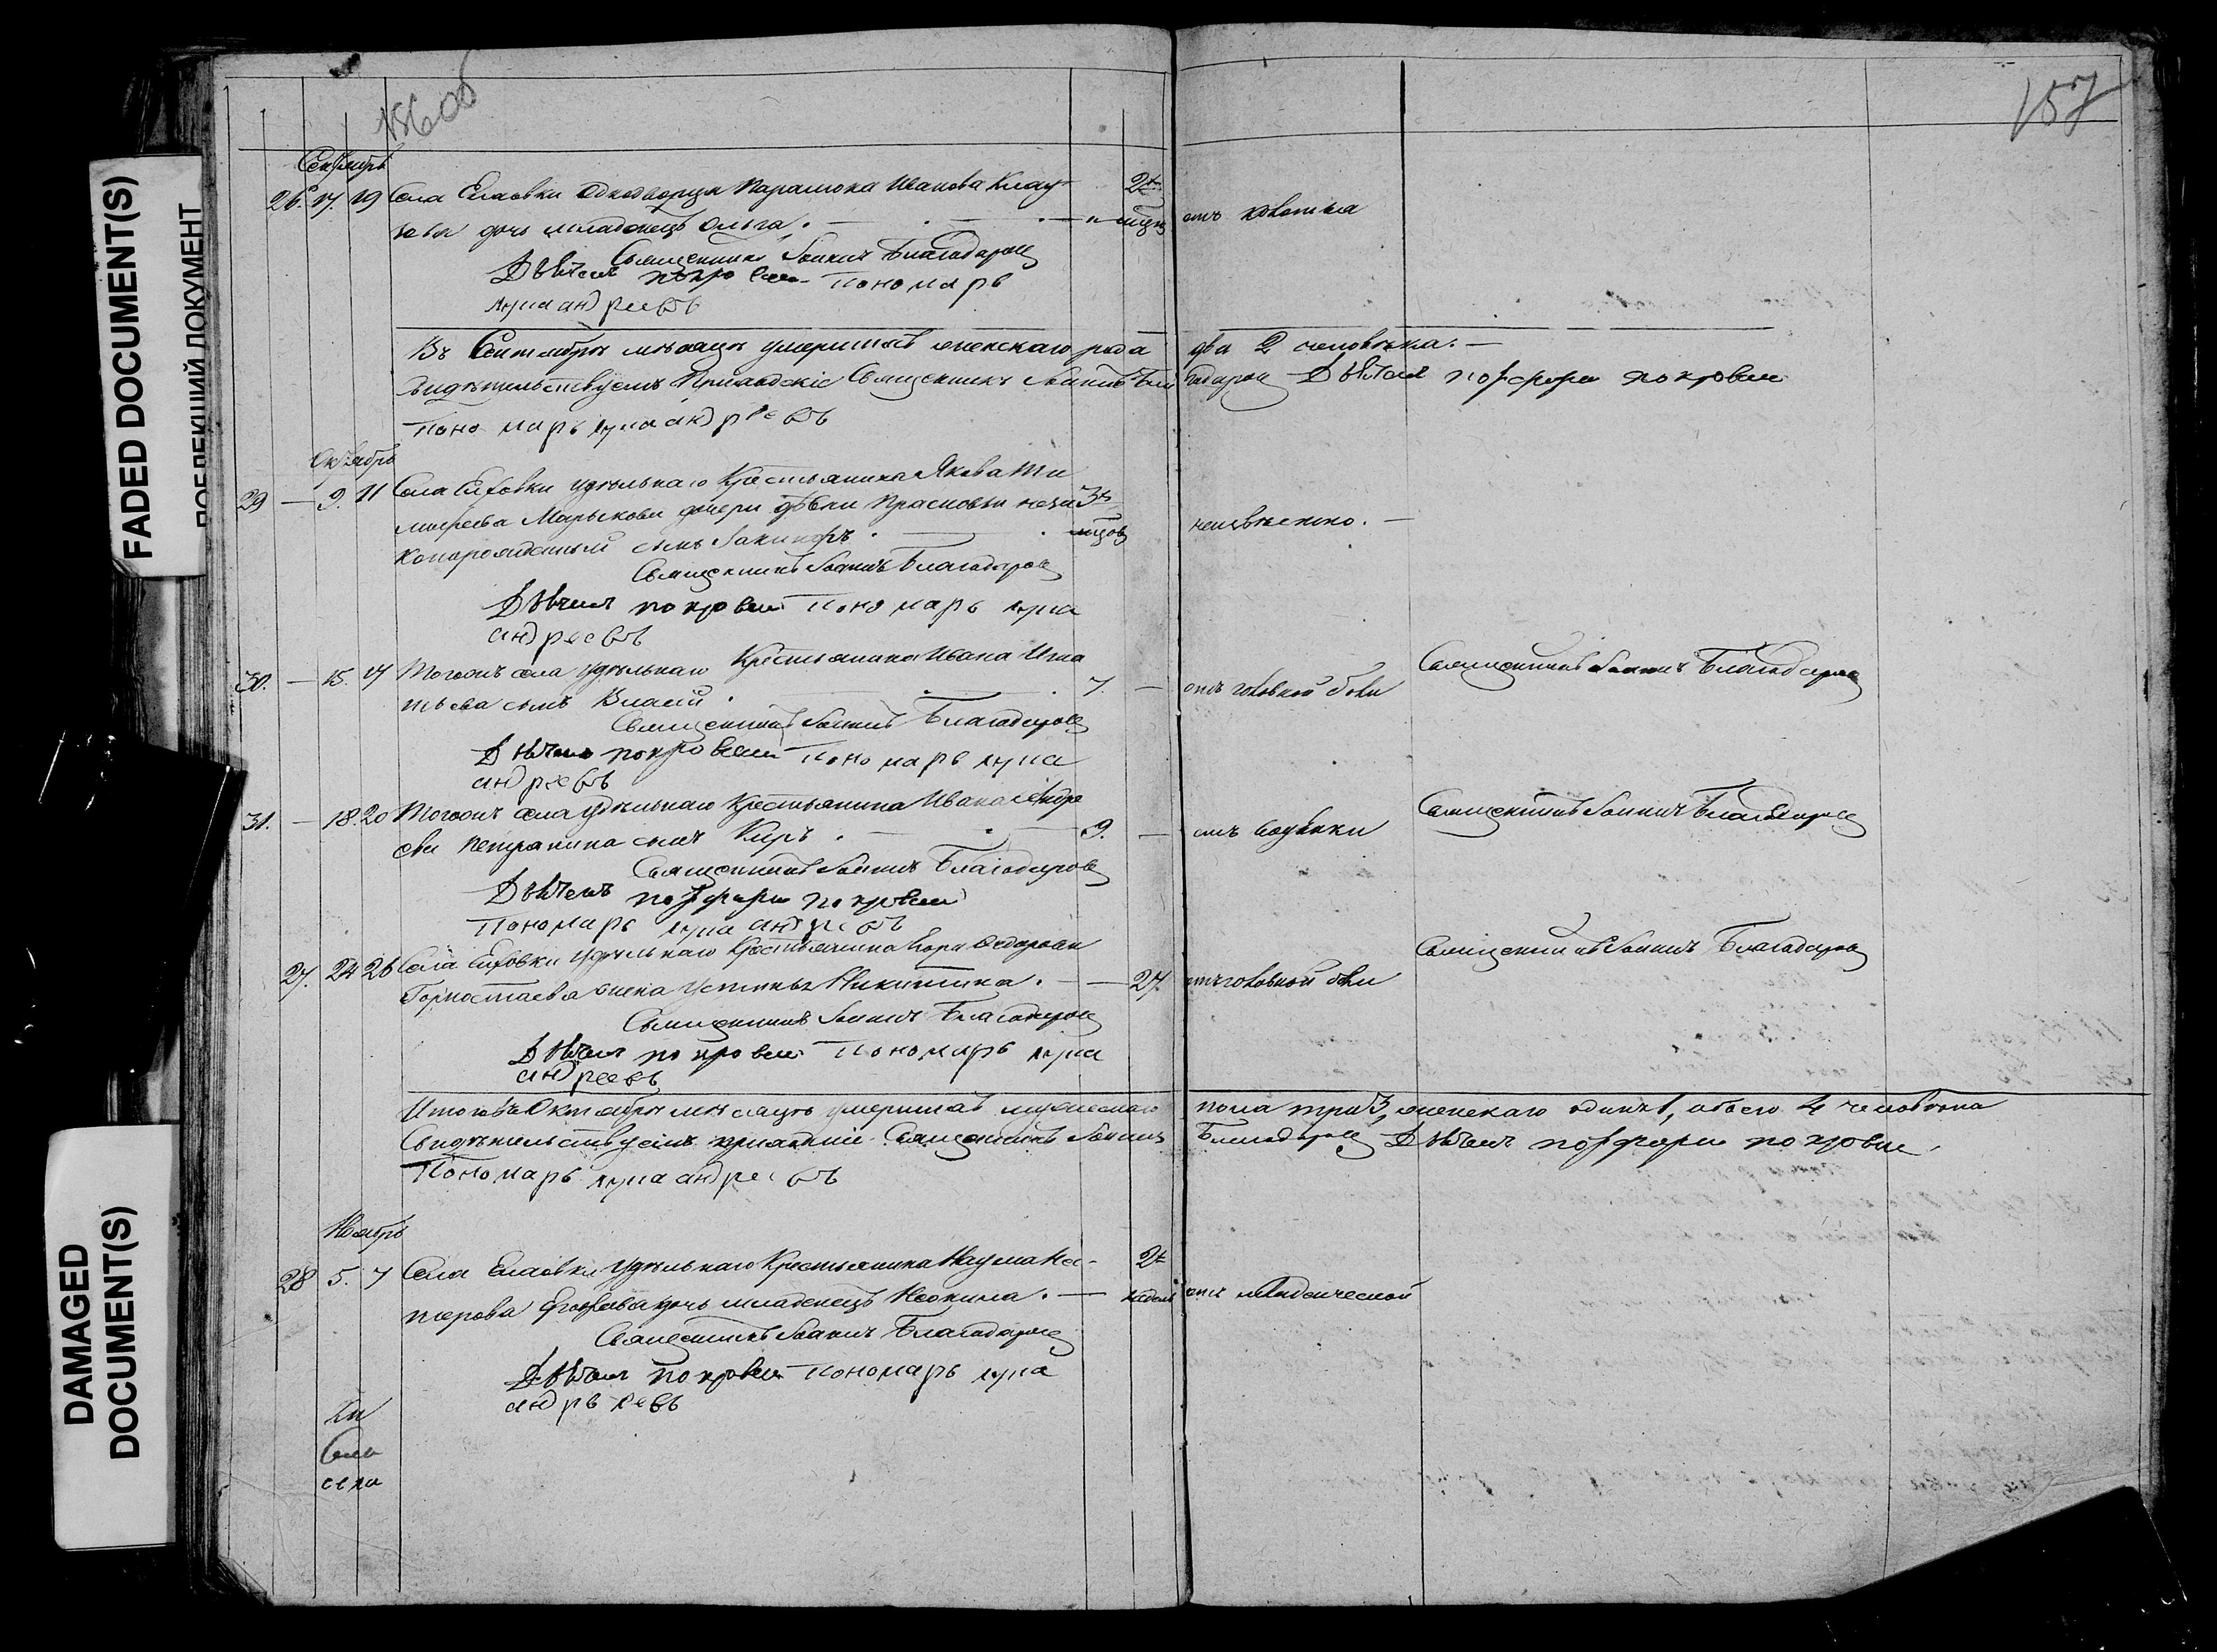 FADED DOCUMENT(S)
DAMAGED
DOCUMENT(S)
156 об
157
Сентябрь
26. 17. 19 Села Елховки Однодворца Иванова 2х
дочь младенецъ Ольга. мцъ отъ поноса
Священникъ Іоаннъ Благодаров
Дьячекъ покровск Пономарь
лука андреевъ
Въ Сентябрѣ мѣсяцѣ умершихъ женскаго рода два 2 человѣка. —
Свидѣтельствуемъ Приходскіе Священникъ Іоаннъ Благодаров Дьячекъ порфири покровск
Пономарь лука андреевъ
Октябрь
29 — 9. 11 Села Елховки удѣльнаго Крестьянина Якова Ти
мофеева дочери дѣвки Прасковьи неза 3х
коннорожденный сынъ Іакинфъ. мцов неизвѣстно. —
Священникъ Іоаннъ Благодаров
Дьячекъ покровск Пономарь лука
андреевъ
30. — 15. 17 Тогожъ села удѣльнаго Крестьянина Ивана Игна
тьева сынъ Власій. 7. — отъ головной боли Священникъ Іоаннъ Благодаров
Священникъ Іоаннъ Благодаров
Дьячекъ покровск Пономарь лука
андреевъ
31. — 18. 20 Тогожъ села удѣльнаго Крестьянина Ивана Андре
ева сынъ Киръ. 9. — отъ Священникъ Іоаннъ Благодаров
Священникъ Іоаннъ Благодаров
Дьячекъ порфири покровск
Пономарь лука андреевъ
27. 24 26 Села Елховки удѣльнаго Крестьянина Егора Федорова
Горностаева жена Устинья Никитина. — 27. отъ головной боли Священникъ Іоаннъ Благодаров
Священникъ Іоаннъ Благодаров
Дьячекъ покровск Пономарь лука
андреевъ
Итого въ Октябрѣ мѣсяцѣ умершихъ мужескаго пола три 3, женскаго одинъ 1, обоего 4 человѣка
Свидѣтельствуемъ приходскіе Священникъ Іоаннъ Благодаров Дьячекъ порфири покровск
Пономарь лука андреевъ
Ноябрь
28 5. 7 Села Елховки удѣльнаго Крестьянина Наума Нес- 2х
терова дочь младенецъ Неонила. — недель отъ младенческой
Священникъ Іоаннъ Благодаров
Дьячекъ покровск Пономарь лука
андреевъ
села